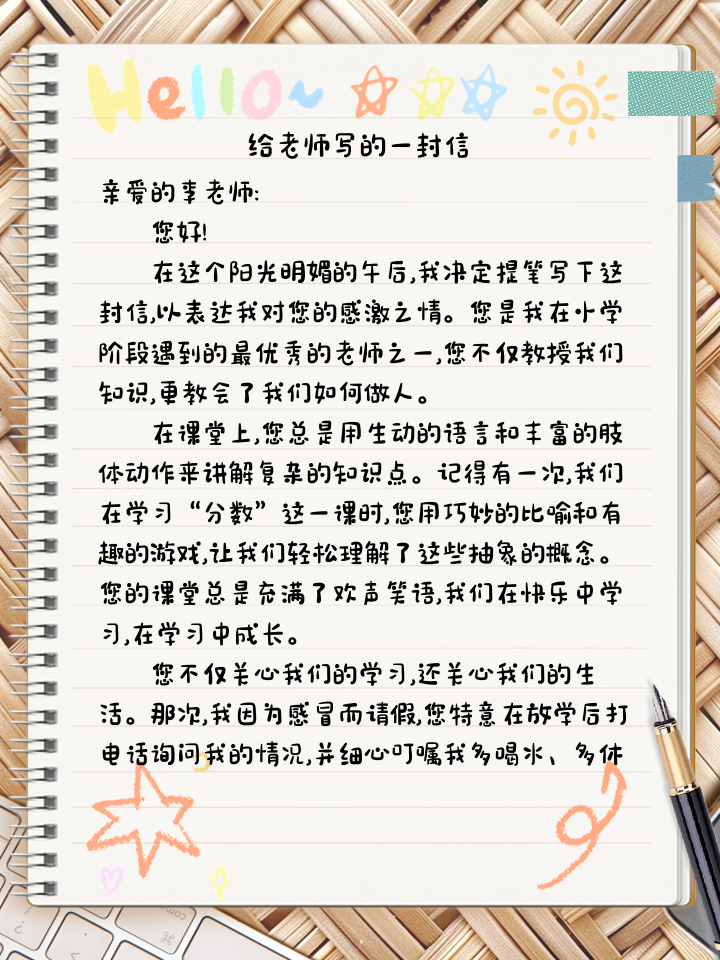 Hello~
给老师写的一封信
亲爱的李老师:
您好!
在这个阳光明媚的午后,我决定提笔写下这
封信,以表达我对您的感激之情。您是我在小学
阶段遇到的最优秀的老师之一,您不仅教授我们
知识,更教会了我们如何做人。
在课堂上,您总是用生动的语言和丰富的肢
体动作来讲解复杂的知识点。记得有一次,我们
在学习“分数”这一课时,您用巧妙的比喻和有
趣的游戏,让我们轻松理解了这些抽象的概念。
您的课堂总是充满了欢声笑语,我们在快乐中学
习,在学习中成长。
您不仅关心我们的学习,还关心我们的生
活。那次,我因为感冒而请假,您特意在放学后打
电话询问我的情况,并细心叮嘱我多喝水、多休